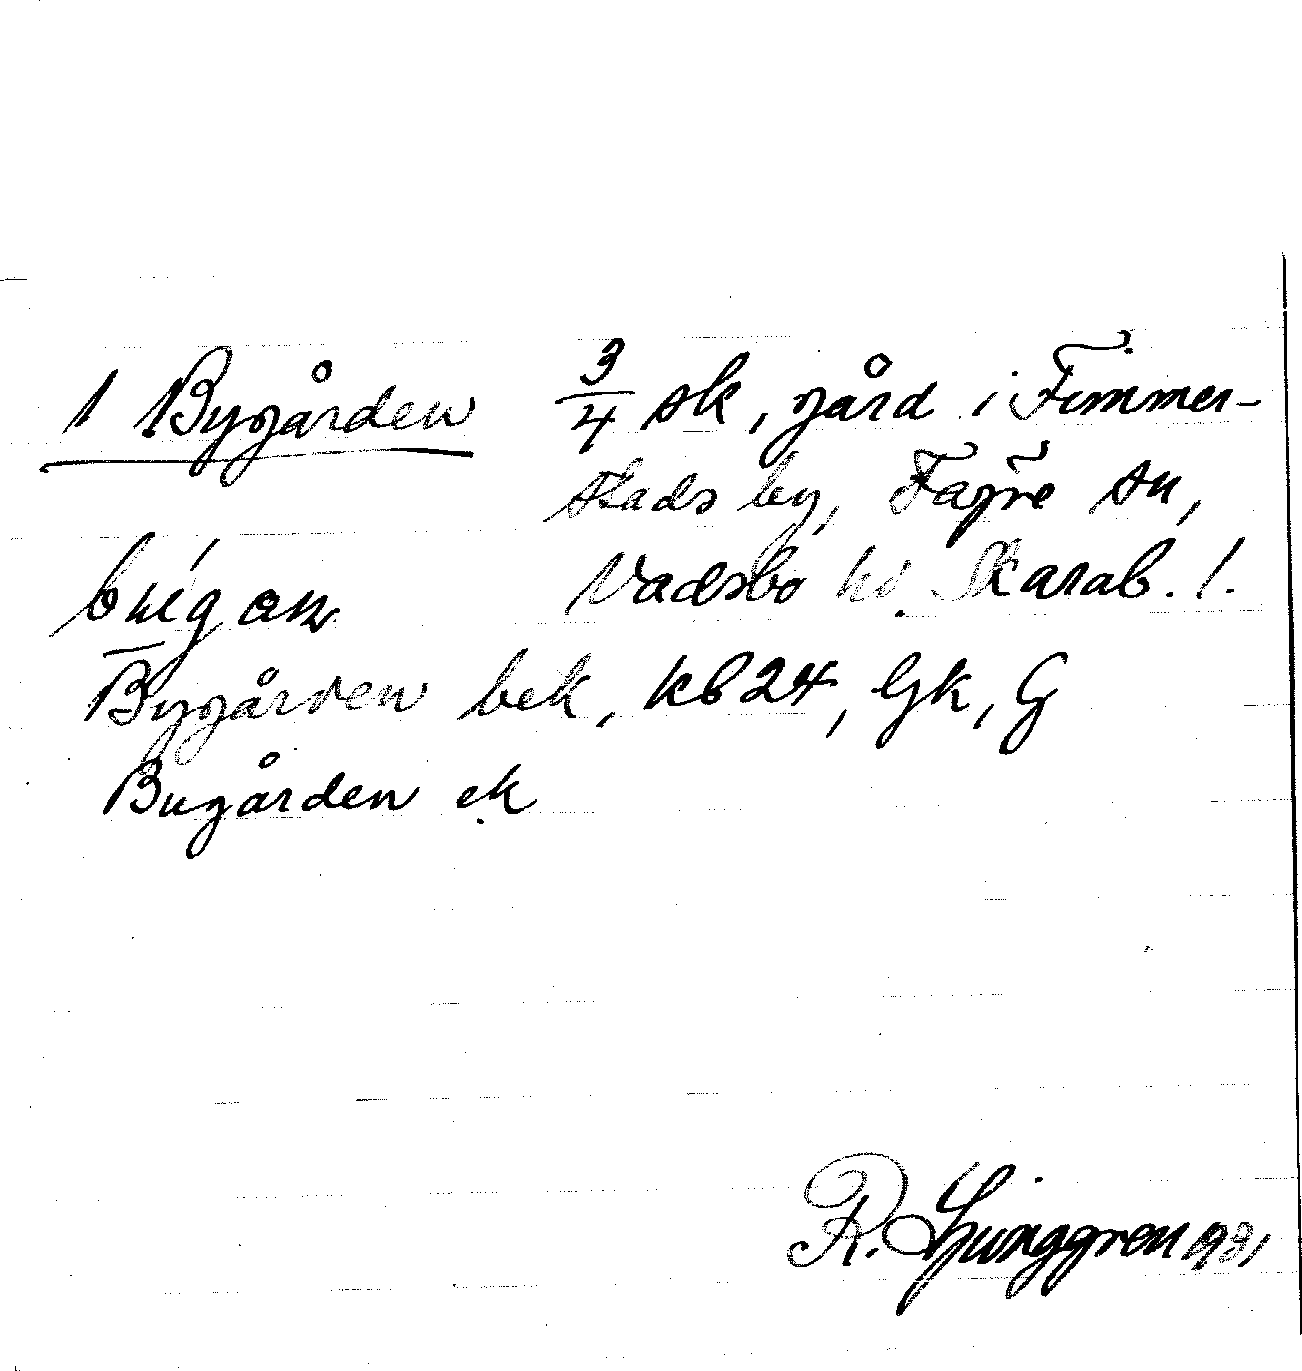 1 Bygården 3/4 sk, gård i Fimmer-
stads by, Fägre sn,
Vadsbo hd. Skarab. l.
Bygården bek, kb 24, Gk, G
Bugården ek
R. Ljunggren 1931